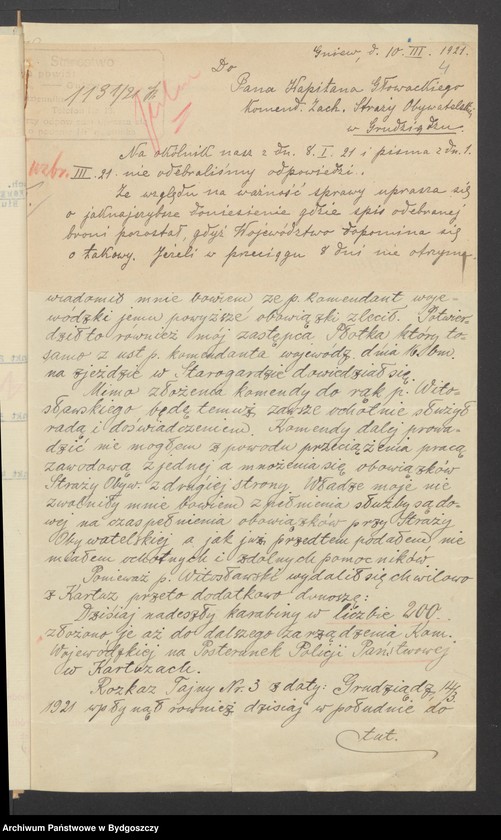 Gniew, d. 10. III. 1921.
4
Do
Pana Kapitana Głowackiego
Komend. Zach. Straży Obywatelsk.
w Grudziądzu.
1131/21
Na okólnik nasz z dn. 8. I. 21 i pisma z dn. 1.
III. 21. nie odebraliśmy odpowiedzi.
Ze względu na ważność sprawy uprasza się
o jaknajszybsze doniesienie gdzie spis odebranej
broni pozostał, gdyż Województwo dopomina się
o takowy. Jeżeli w przeciągu 8 dni nie otrzyma-
wiadomił mnie bowiem że p. komendant woje-
wódzki jemu powyższe obowiązki zlecił. Potwier-
dził to również mój zastępca Płotka który to-
samo z ust p. komendanta wojewódz. dnia bm.
na zjeździe w Starogardzie dowiedział się.
Mimo złożenia komendy do rąk p. Wito-
sławskiego będę temuż zawsze ochotnie służył
radą i doświadczeniem. Komendy dalej prowa-
dzić nie mogłem z powodu przeciążenia pracą
zawodową z jednej a mnożenia się obowiązków
Straży Obyw. z drugiej strony. Władze moje nie
zwolniły mnie bowiem z pełnienia służby sądo-
wej na czas pełnienia obowiązków przy Straży
Obywatelskiej a jak już przedtem podałem nie
miałem ochotnych i zdolnych pomocników.
Ponieważ p. Witosławski wydalił się chwilowo
z Kartuz przeto dodatkowo donoszę:
Dzisiaj nadeszły karabiny w liczbie 200.
złożono je aż do dalszego zarządzenia Kom.
Wojewódzkiej na Posterunek Policji Państwowej
w Kartuzach.
Rozkaz Tajny Nr. 3 z daty: Grudziądz 14/3.
1921 wpłynął również dzisiaj w południe do
tut.
Archiwum Państwowe w Bydgoszczy